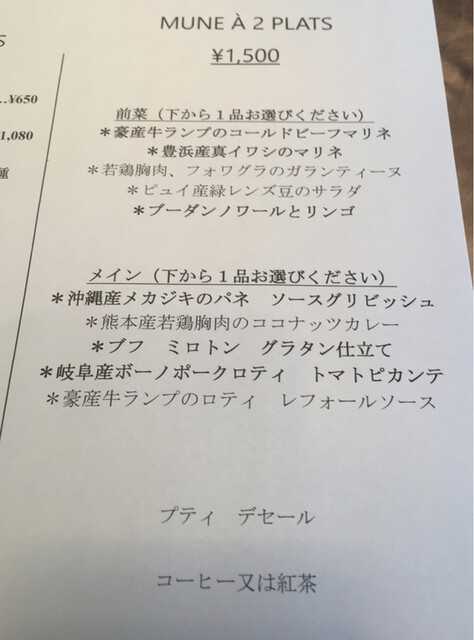 S
…¥650
1,080
種
MUNE À 2 PLATS
¥1,500
前菜（下から１品お選びください）
＊豪産牛ランプのコールドビーフマリネ
＊豊浜産真イワシのマリネ
＊若鶏胸肉、フォワグラのガランティーヌ
＊ピュイ産緑レンズ豆のサラダ
＊ブーダンノワールとリンゴ
メイン（下から１品お選びください）
＊沖縄産メカジキのパネ　ソースグリビッシュ
＊熊本産若鶏胸肉のココナッツカレー
＊ブフ　ミロトン　グラタン仕立て
＊岐阜産ボーノポークロティ　トマトピカンテ
＊豪産牛ランプのロティ　レフォールソース
プティ　デセール
コーヒー又は紅茶